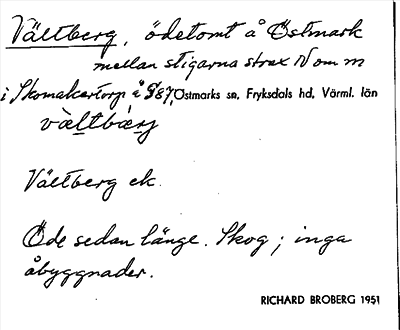 Vältberg, ödetomt å Östmark
mellan stigarna strax N om m
i Skomakartorp å 987, Östmarks sn, Fryksdals hd, Värml. län
Vältberg ek.
Öde sedan länge. Skog; inga
åbyggnader.
RICHARD BROBERG 1951